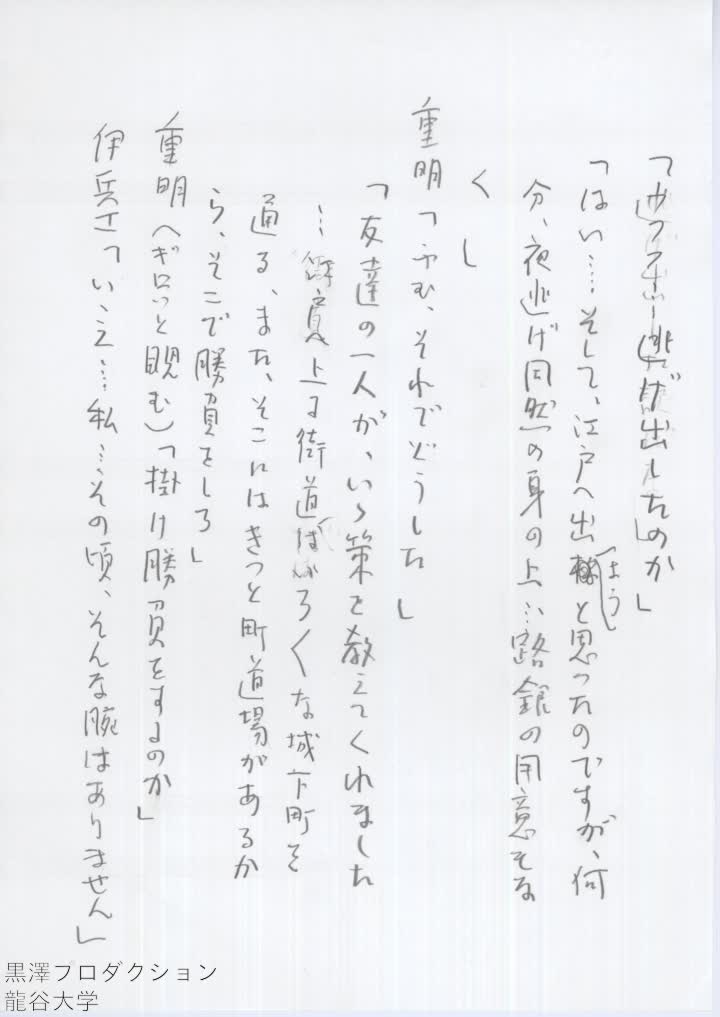 「逃げ出したのか」
「はい……そして、江戸へ出ようと思ったのですが、何
分、夜逃げ同然の身の上…路銀の用意もな
く」
重明「ふむ、それでどうした」
「友達の一人が、いゝ策を教えてくれました
…上る街道はいろ〱な城下町を
通る、また、そこにはきっと町道場があるか
ら、そこで勝負をしろ」
重明(ギロッと睨む)「掛け勝負をするのか」
伊兵エ「いゝえ…私…その頃、そんな腕はありません」
黒澤プロダクション
龍谷大学